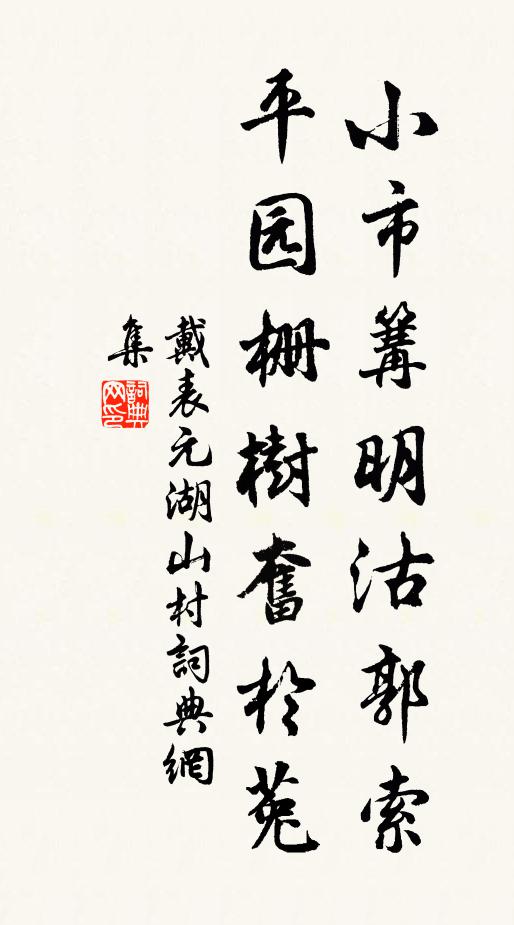 小市篝明沽郭索
平园栅樹奮於菟
戴表元湖山村詞典網
集
詞典網印